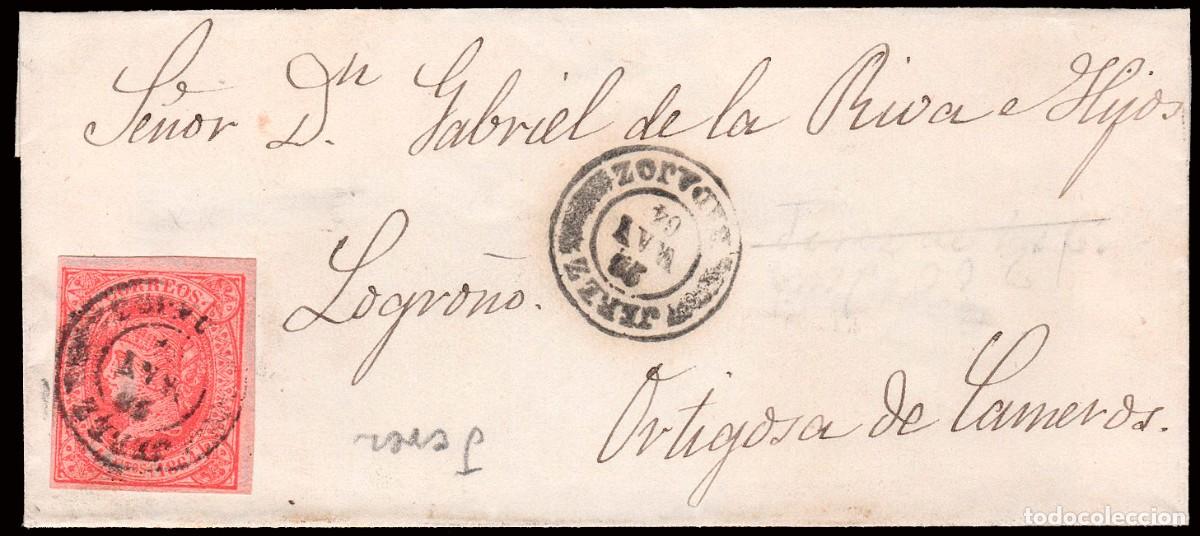 Señor Dn. Gabriel de la Riva e Hijos
Logroño.
Ortigosa de Cameros.
JEREZ
BADAJOZ
MAY
64
CORREOS
JEREZ
MAY
Jerez
todocoleccion